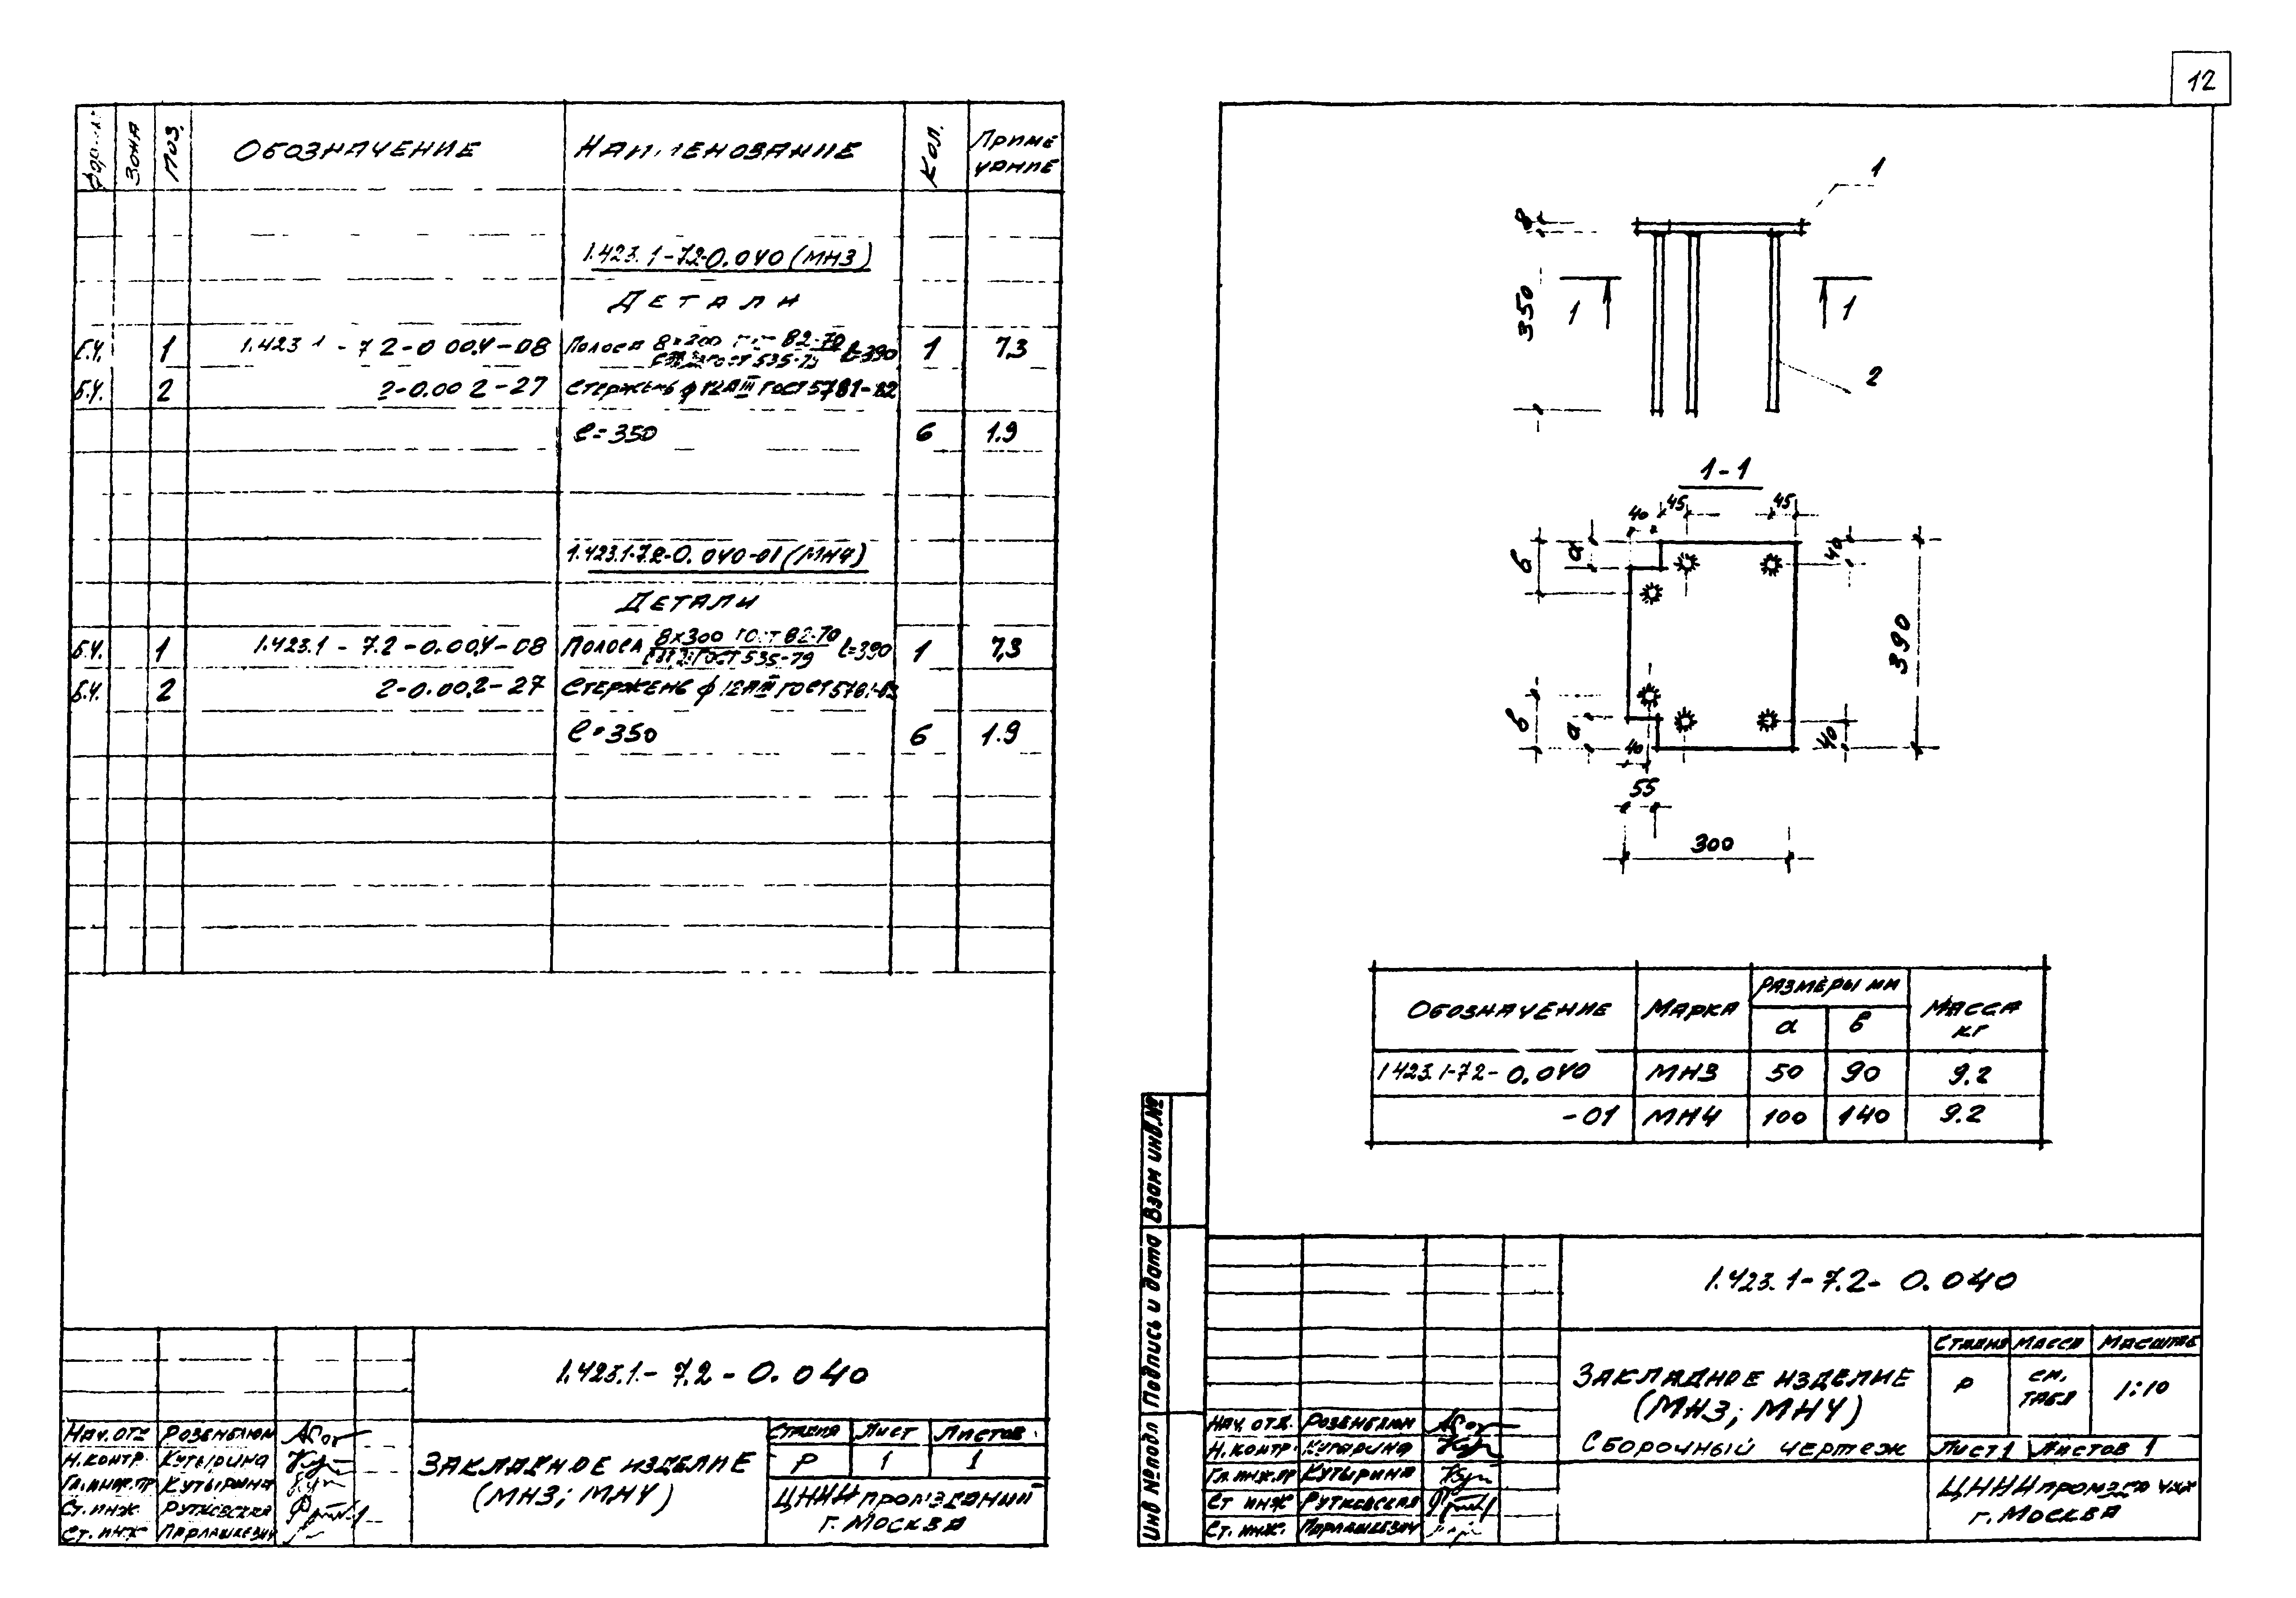 12
Зона
Поз.
Обозначение
Наименование
Кол.
Приме
чание
1.423.1-7.2-0.040 (МН3)
Детали
Б.Ч. 1 1.423.1-7.2-0.004-08 Полоса 8х300 82-70 l=390 1 7,3
ГОСТ 535-79
Б.Ч. 2 2-0.002-27 Стержень ф 12АIII ГОСТ 5781-82
l=350 6 1.9
1.423.1-7.2-0.040-01 (МН4)
Детали
Б.Ч. 1 1.423.1-7.2-0.004-08 Полоса 8х300 ГОСТ 82-70 l=390 1 7,3
ГОСТ 535-79
Б.Ч. 2 2-0.002-27 Стержень ф 12АIII ГОСТ 5781-82
l=350 6 1.9
1.423.1-7.2-0.040
Закладное изделие
(МН3; МН4)
Стадия Лист Листов
Р 1 1
ЦНИИпромзданий
г. Москва
Нач. отд. Розенблюм
Н. контр. Кутырина
Гл. инж. пр Кутырина
Ст. инж. Рутковская
Ст. инж. Парлашкевич
1
8
350
1 1
2
1-1
40 45 45
в а 40
390
в а 40
40
55
300
Обозначение Марка Размеры мм Масса
кг
а в
1.423.1-7.2-0.040 МН3 50 90 9.2
-01 МН4 100 140 9.2
Инв № подл Подпись и дата Взам инв. №
1.423.1-7.2-0.040
Закладное изделие
(МН3; МН4)
Сборочный чертеж
Стадия Масса Масштаб
Р см. табл 1:10
Лист 1 Листов 1
г. Москва
Нач. отд. Розенблюм
Н. контр. Кутырина
Гл. инж. пр Кутырина
Ст инж Рутковская
Ст. инж. Парлашкевич